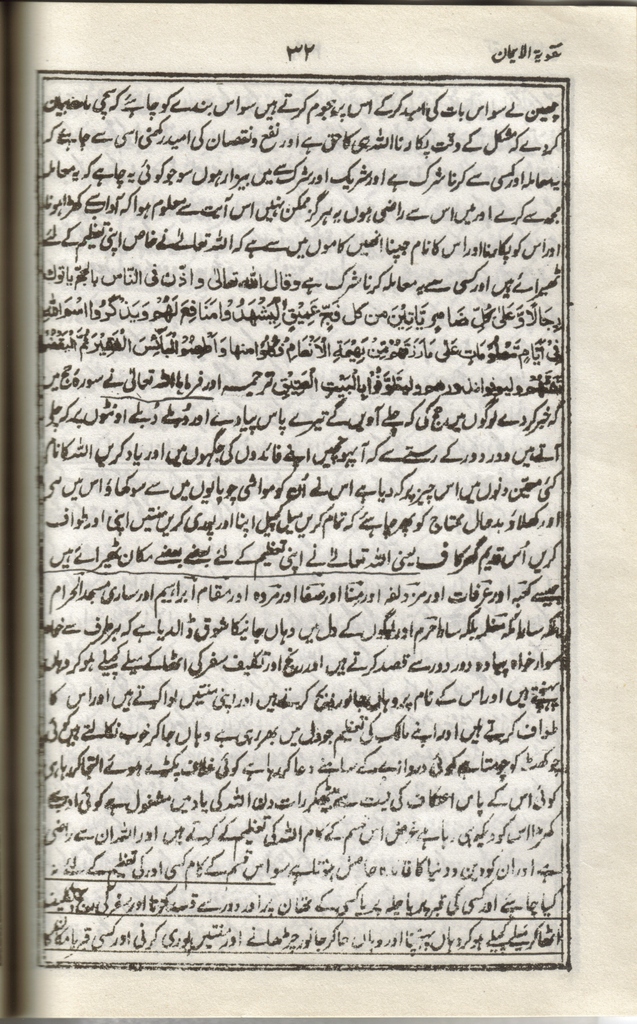 تقویۃ الایمان ۳۲
چھین لے سو اس بات کی امید کرکے اس پر ہجوم کرتے ہیں سو اس بندے کو چاہئے کہ سچی
کردے کہ مشکل کے وقت پکارنا اللہ ہی کا حق ہے اور نفع و نقصان کی امید رکھنی اسی سے چاہئے کہ
یہ معاملہ اور کسی سے کرنا شرک ہے اور شریک اور شرک سے میں بیزار ہوں سو جو کوئی یہ چاہے کہ یہ معاملہ
مجھ سے کرے اور میں اس سے راضی ہوں یہ ہرگز ممکن نہیں اس آیت سے معلوم ہوا کہ ادب سے کھڑا ہونا
اور اس کو پکارنا اور اس کا نام جپنا انھیں کاموں میں سے ہے کہ اللہ تعالےٰ نے خاص اپنی تعظیم کے لئے
ٹھیرائے ہیں اور کسی سے یہ معاملہ کرنا شرک ہے وقال اللہ تعالیٰ و اذن فی الناس بالحج یاتوک
رجالا وعلی کل ضامر یاتین من کل فج عمیق لیشھدوا منافع لھم ویذکروا اسم اللہ
فی ایام معلومات علی ما رزقھم من بھیمة الانعام فکلوا منھا واطعموا البائس الفقیر ثم لیقضوا
تفثھم ولیوفوا نذورھم ولیطوفوا بالبیت العتیق ترجمہ اور فرمایا اللہ تعالیٰ نے سورۂ حج میں
کہ خبر کردے لوگوں میں حج کی کہ چلے آویں گے تیرے پاس پیادے اور دُبلے دُبلے اونٹوں پر کہ چلے
آتے ہیں دور دور کے رستے سے کہ آ پہونچیں اپنے فائدوں کی جگہوں میں اور یاد کریں اللہ کا نام
کئی معین دنوں میں اس چیز پر کہ دیا ہے اس نے ان کو مواشی چوپایوں میں سے سو کھاؤ اس میں سے
اور کھلاؤ بدحال محتاج کو پھر چاہئے کہ تمام کریں میل کچیل اپنا اور پوری کریں منتیں اپنی اور طواف
کریں اُس قدیم گھر کا ف یعنی اللہ تعالےٰ نے اپنی تعظیم کے لئے بعضے بعضے مکان ٹھیرائے ہیں
جیسے کعبہ اور عرفات اور مزدلفہ اور منا اور صفا اور مروہ اور مقام ابراہیم اور ساری مسجد الحرام
بلکہ سارا مکہ معظمہ بلکہ سارا حرم اور لوگوں کے دل میں وہاں جانیکا شوق ڈالدیا ہے کہ ہر طرف سے خواہ
سوار خواہ پیادہ دور دور سے قصد کرتے ہیں اور رنج اور تکلیف سفر کی اٹھا کے میلے کچیلے ہوکر وہاں
پہنچتے ہیں اور اس کے نام پر وہاں جانور ذبح کرتے ہیں اور اپنی منتیں ادا کرتے ہیں اور اس کا
طواف کرتے ہیں اور اپنے مالک کی تعظیم جو دل میں بھر رہی ہے وہاں جاکر خوب نکالتے ہیں کوئی
چوکھٹ کو چومتا ہے کوئی دروازے کے سامنے دعا کر رہا ہے کوئی غلاف پکڑے ہوئے التجا کر رہا ہے
کوئی اس کے پاس اعتکاف کی نیت سے بیٹھکر رات دن اللہ کی یاد میں مشغول ہے کوئی ادب سے
کھڑا اس کو دیکھ ہی رہا ہے غرض اس قسم کے کام اللہ کی تعظیم کے کرتے ہیں اور اللہ ان سے راضی
ہے اور ان کو دین و دنیا کا فائدہ حاصل ہوتا ہے سو اس قسم کے کام کسی اور کی تعظیم کے لئے نہ
کیا چاہئے اور کسی کی قبر پر یا چلہ پر یا کسی کے تھان پر اور دور سے قصد کرنا اور سفر کی رنج
اٹھا کر میلے کچیلے ہوکر وہاں پہنچنا اور وہاں جاکر جانور چڑھانے اور منتیں پوری کرنی اور کسی قبر یا مکان کا